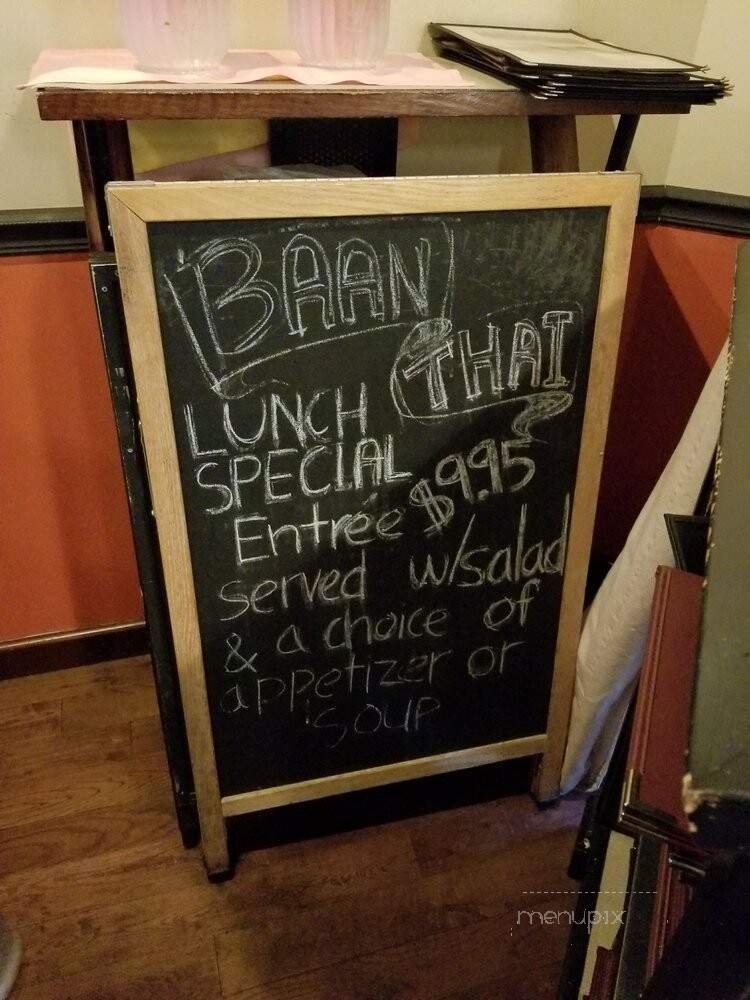 BAAN
THAI
LUNCH
SPECIAL
Entrée $9.95
served w/salad
& a choice of
appetizer or
soup
menupix